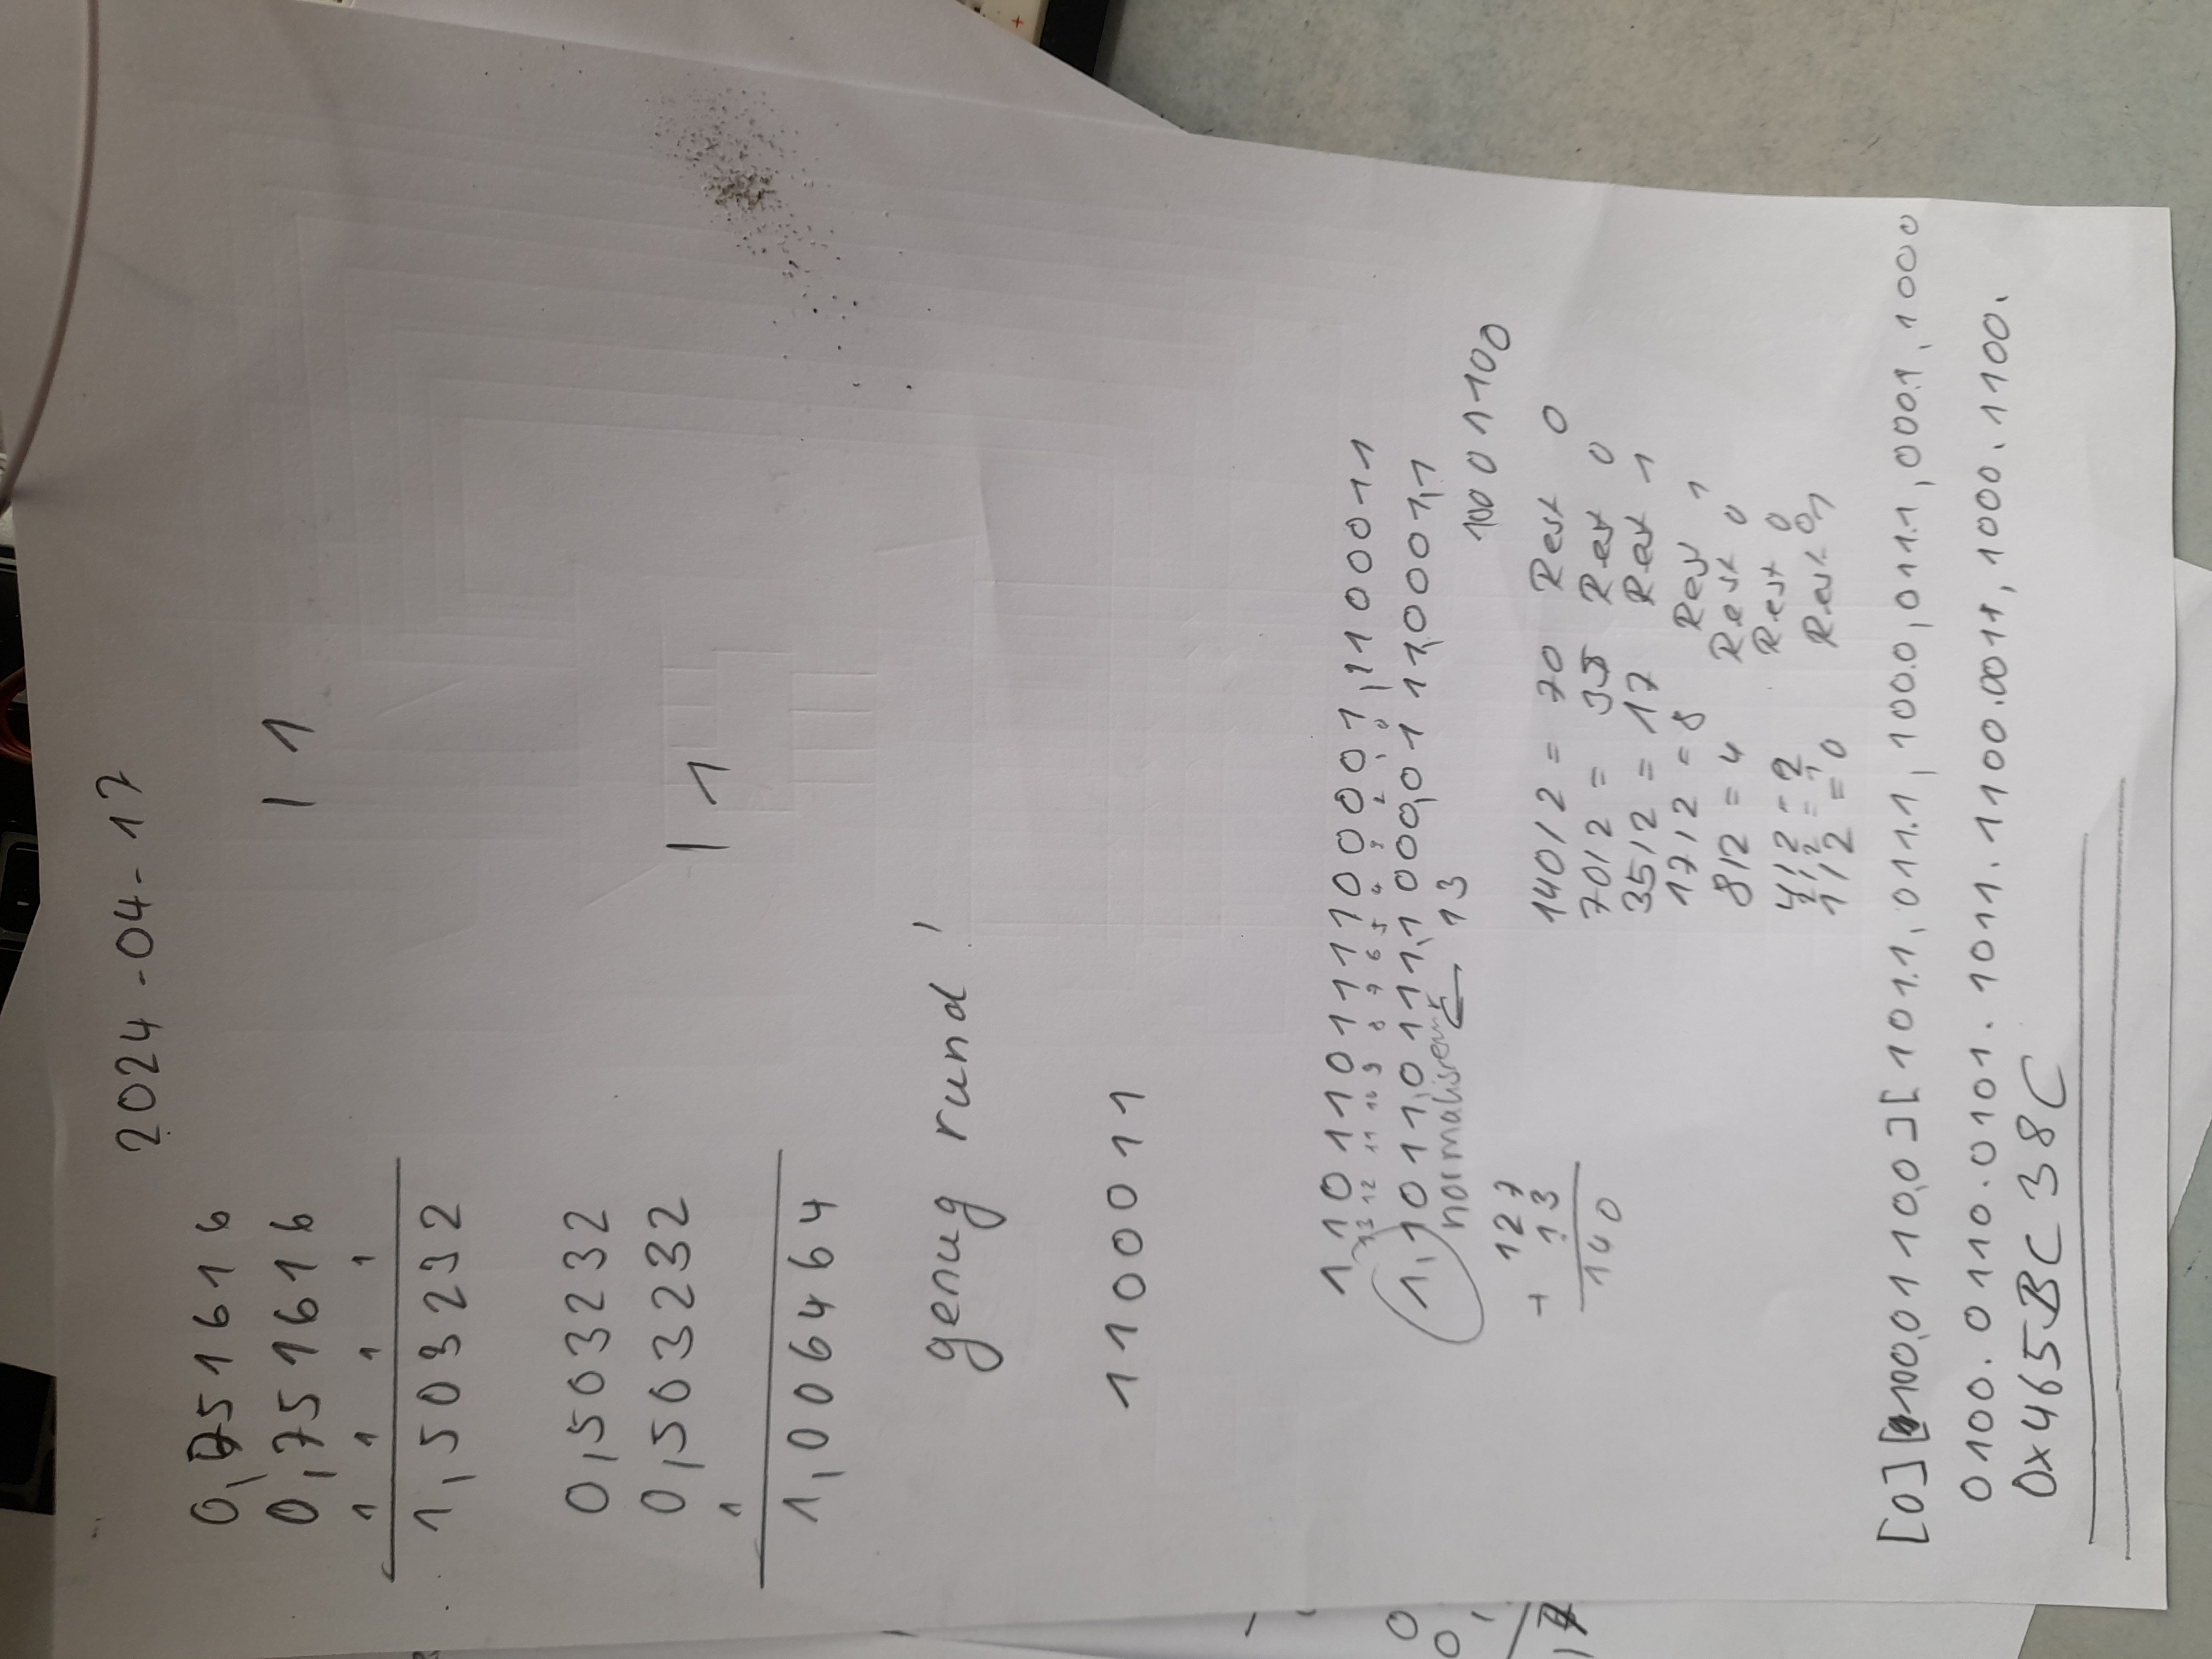 2024-04-17
0,751616
0,751616 | 1
1 1 1 1
1,503232
0,503232
0,503232 | 1
1
1,006464
genug rund!
110011
11011011110001,110011
13 12 11 10 9 8 7 6 5 4 3 2 1 0
1,1011,0111,1000,0111,0001,1
normalisieren 13
10001100
127
+ 13
140
140/2 = 70 Rest 0
70/2 = 35 Rest 0
35/2 = 17 Rest 1
17/2 = 8 Rest 1
8/2 = 4 Rest 0
4/2 = 2 Rest 0
2/2 = 1 0
1/2 = 0 Rest 1
[0][100,0110,0][101.1,011.1,100.0,011.1,000.1,1000
0100.0110.0101.1011.1100.0011,1000.1100.
0x465BC38C